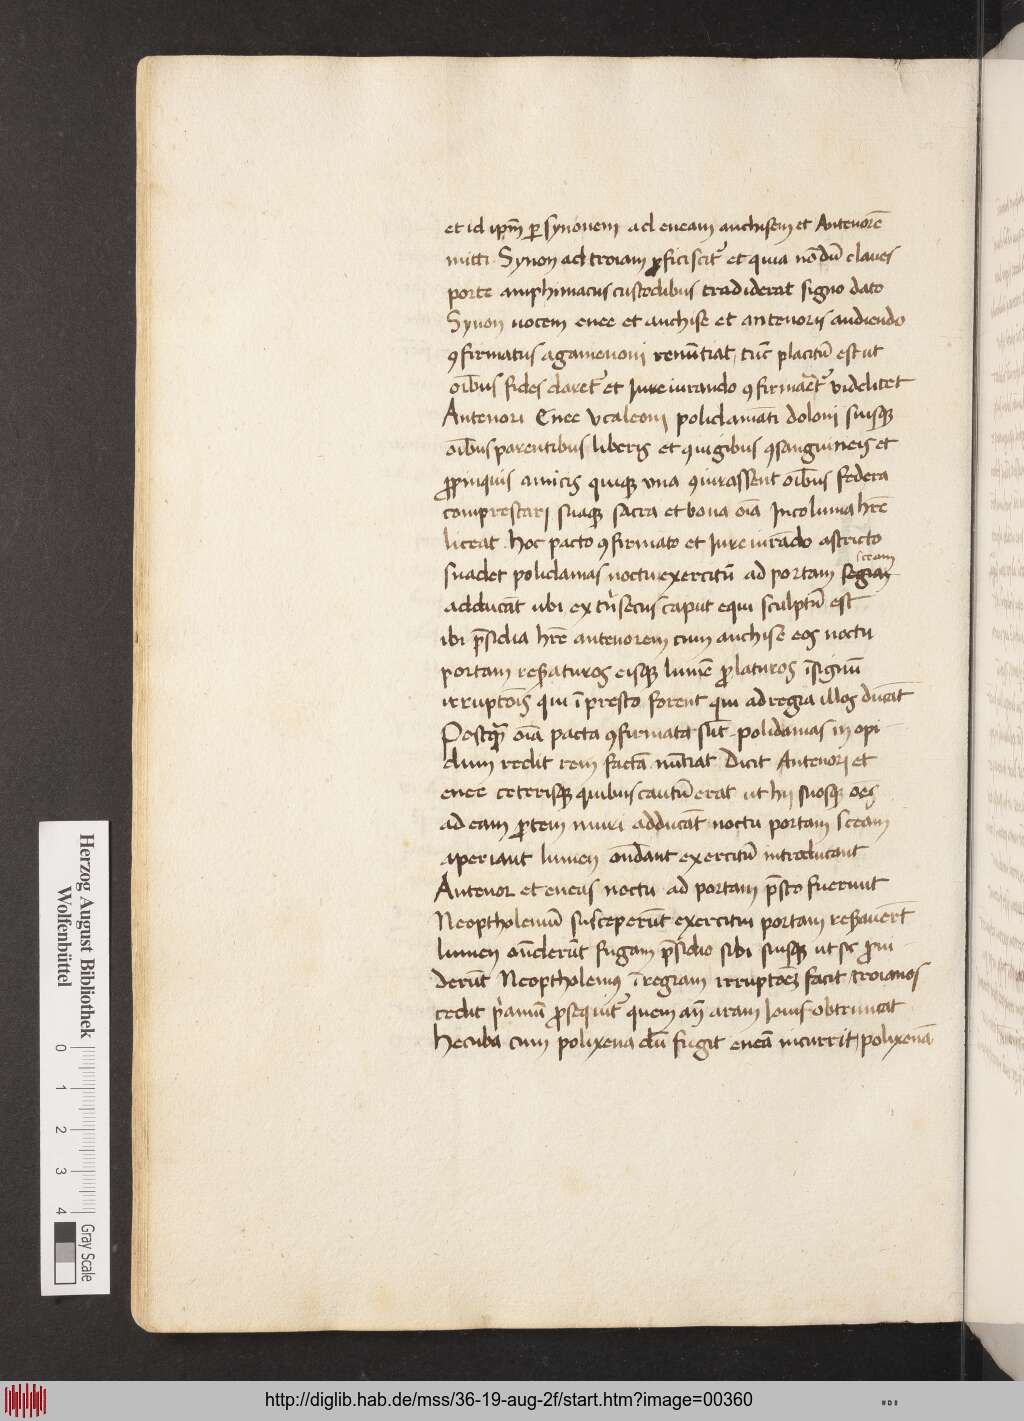 et id ip̄m ꝑ synonem ad eneam anchisem et Antenorē
mitti. Synon ad troiam ꝓficiscit᷑ et quia nōdū claues
porte amphimacus custodibus tradiderat signo dato
Synon uocem enee et anchise et antenoris audiendo
ꝯfirmatus agamenoni renūtiat, tūc placitū est ut
oībus fides daret᷑ et Iureiurando ꝯfirmāet᷑ videlicet
Antenori Enee Vcaleonj polidamāti doloni suisqꝫ
oībus parentibus liberis et ꝯiugibus ꝯsanguineis et
ꝓpinquis amicis quiqꝫ una ꝯiurassent oībus federa
comprestarj suaqꝫ sacra et bona oīa Incolumia hr̄e
liceat. hoc pacto ꝯfirmato et Iureiurādo astricto
sceam
suadet polidamas noctu exercitū ad portam segiam
adducāt ubi extr̄secus caput equi sculptū est
ibi p̄sidia hr̄e antenorem cum anchise eos noctu
portam res̄aturos eisqꝫ lumē ꝓlaturos īsignū
irruptōis qui ī presto forent qui ad regia illos ducāt
Postqꝫ̄ oīa pacta ꝯfirmata sūt. polidamas in opi
dum redit rem factā nūtiat Dicit Antenorj et
enee ceterisqꝫ quibus cautū erat ut hij suosqꝫ oēs
ad eam ꝑtem muri adducāt noctu portam sceam
aperiant lumen oūdant exercitū introducant
Antenor et eneas noctu ad portam p̄sto fuerunt
Neoptholemū susceperūt exercitui portam res̄auerūt
lumen oūderūt fugam p̄sidio sibi suisqꝫ ut sc ꝓui
derūt Neoptholemus ī regiam irruptōeꝫ facit troianos
cedit p̄amū ꝓsequit᷑ quem añ aram Iouis obtruncat
Hecuba cum polixena dū fugit eneā incurrit, polixenā
Herzog August Bibliothek
Wolfenbüttel
0 1 2 3 4
Gray Scale
http://diglib.hab.de/mss/36-19-aug-2f/start.htm?image=00360